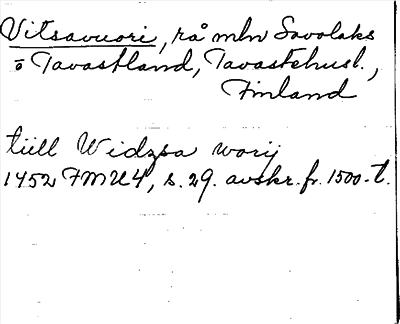 Vitsavuori, rå mln Savolaks
o Tavastland, Tavastehusl.,
Finland
tiill Widzsa worij
1452 FMU4, s. 29. avskr. fr. 1500-t.